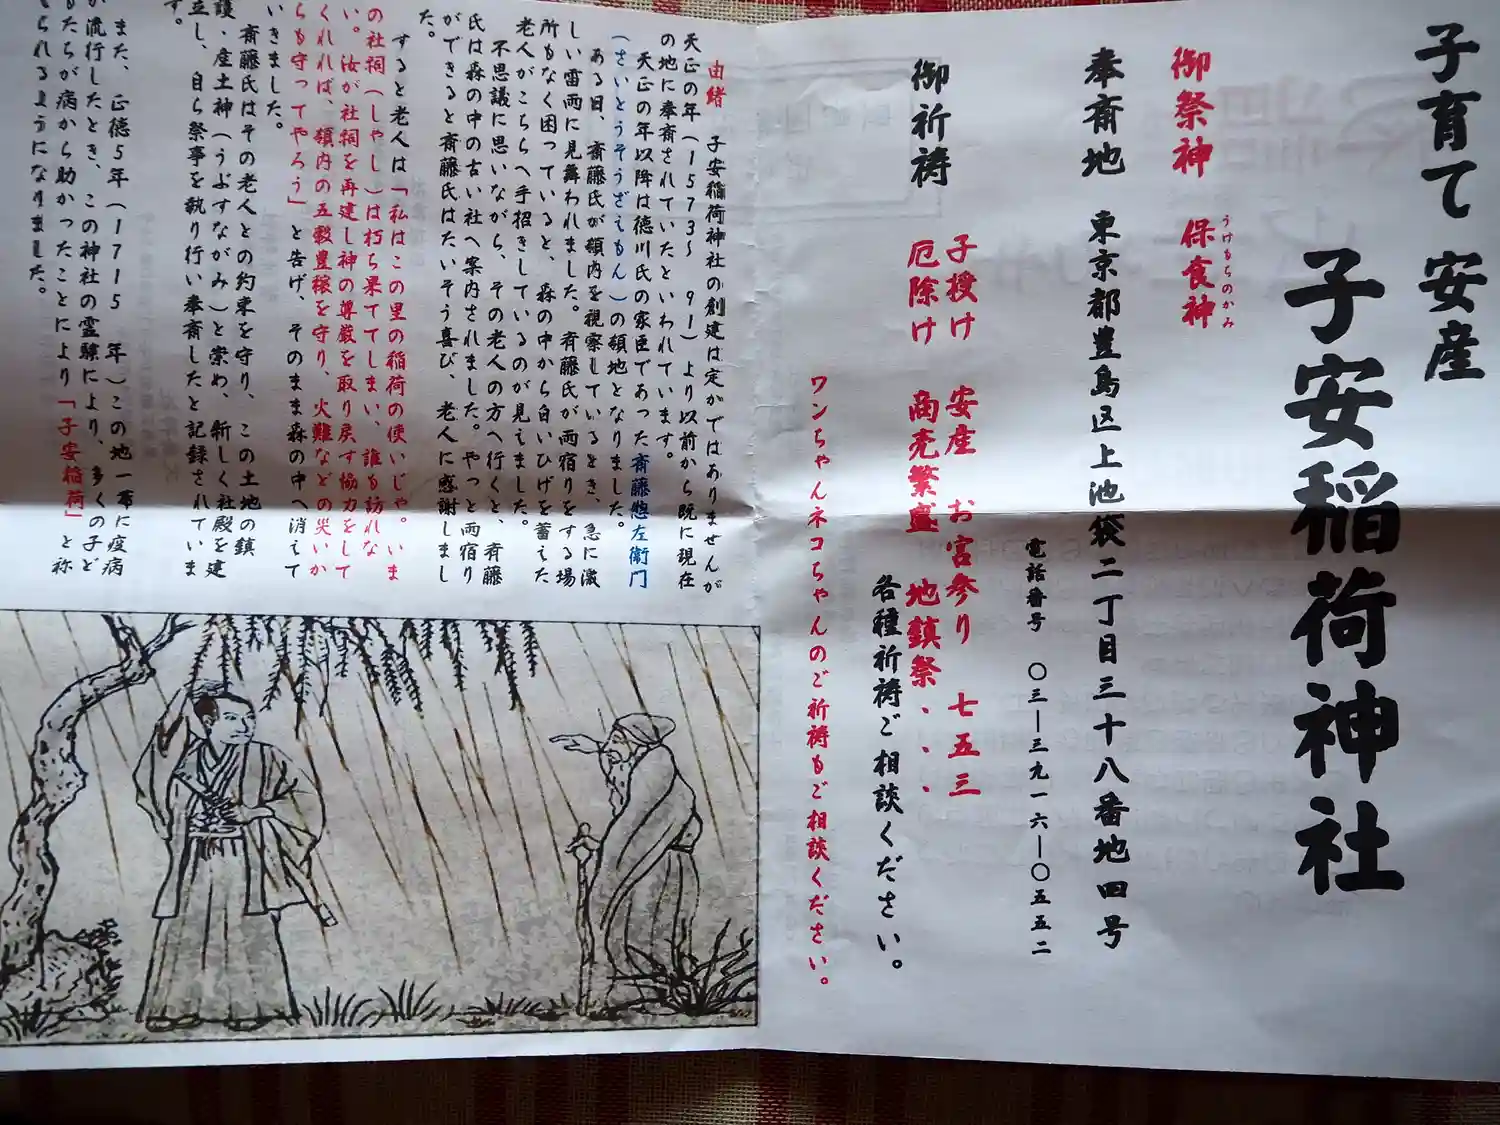 子育て 安産
子安稲荷神社
御祭神 保食神
うけもちのかみ
奉斎地 東京都豊島区上池袋二丁目三十八番地四号
電話番号 〇三―三九一六―〇五五二
御祈祷
子授け 安産 お宮参り 七五三
厄除け 商売繁盛 地鎮祭・・・・
各種祈祷ご相談ください。
ワンちゃんネコちゃんのご祈祷もご相談ください。
由緒 子安稲荷神社の創建は定かではありませんが
天正の年(1573~ 91)より以前から既に現在
の地に奉斎されていたといわれています。
天正の年以降は徳川氏の家臣であった斎藤惣左衛門
(さいとうそうざえもん)の領地となりました。
ある日、斎藤氏が領内を視察しているとき、急に激
しい雷雨に見舞われました。斎藤氏が雨宿りをする場
所もなく困っていると、森の中から白いひげを蓄えた
老人がこちらへ手招きしているのが見えました。
不思議に思いながら、その老人の方へ行くと、斎藤
氏は森の中の古い社へ案内されました。やっと雨宿り
ができると斎藤氏はたいそう喜び、老人に感謝しまし
た。
すると老人は「私はこの里の稲荷の使いじゃ。いま
の社祠(しゃし)は朽ち果ててしまい、誰も訪れな
い。汝が社祠を再建し神の尊厳を取り戻す協力をして
くれれば、領内の五穀豊穣を守り、火難などの災いか
らも守ってやろう」と告げ、そのまま森の中へ消えて
いきました。
斎藤氏はその老人との約束を守り、この土地の鎮
護、産土神(うぶすながみ)と崇め、新しく社殿を建
立し、自ら祭事を執り行い奉斎したと記録されていま
す。
また、正徳5年(1715 年)この地一帯に疫病
が流行したとき、この神社の霊験により、多くの子ど
もたちが病から助かったことにより「子安稲荷」と称
せられるようになりました。